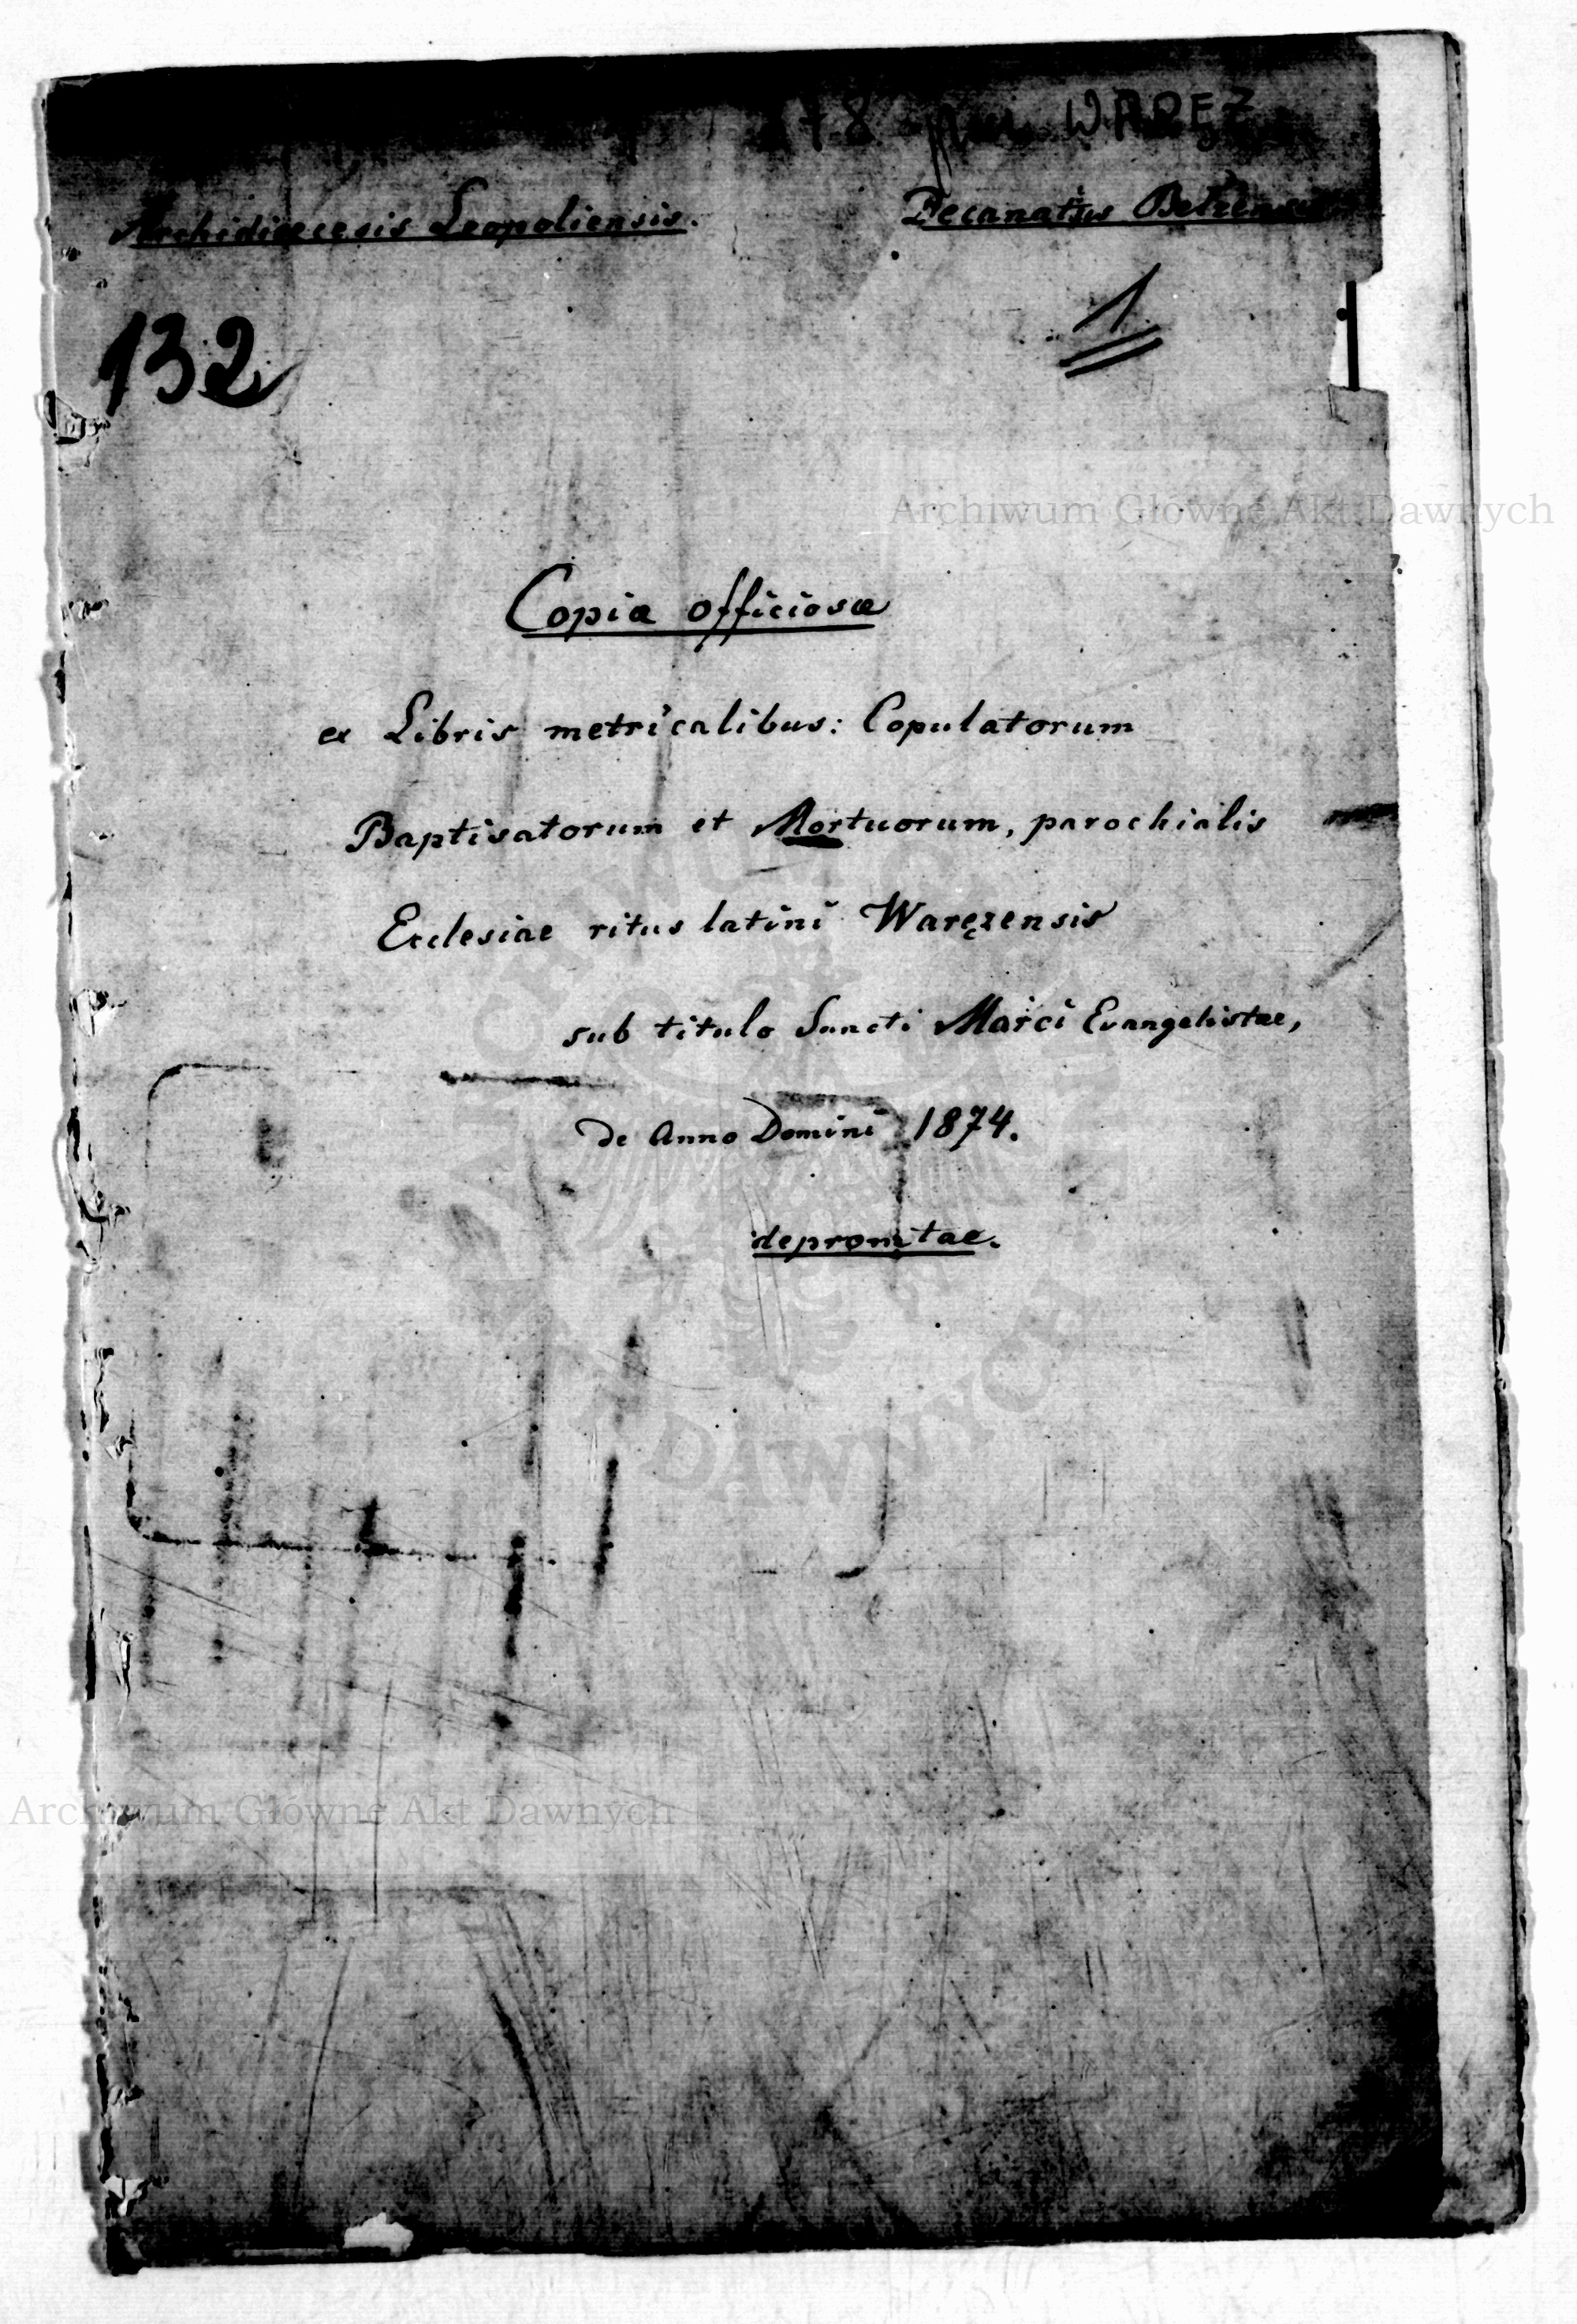 78 WARĘŻ
Archidiœcesis Leopoliensis. Decanatus Belzensis
132 1
Archiwum Główne Akt Dawnych
Copiæ officiosæ
ex Libris metricalibus: Copulatorum
Baptisatorum et Mortuorum, parochialis
Ecclesiae ritus latini Waręzensis
sub titulo Sancti Marci Evangelistae,
de Anno Domini 1874.
depromtae.
Archiwum Główne Akt Dawnych